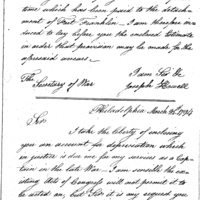 time which has been paid to the detach-
ment of Fort Franklin. I am therefore in-
duced to lay before you the enclosed Estimate
in order that provision may be made for the
aforesaid arrears.
I am Sir &c
The Secretary of War
Joseph Howell
Philadelphia March 26, 1794
Sir
I take the liberty of enclosing
you an account for depreciation which
in justice is due me for my services as a Cap-
tain in the late War. I am sensible the ex-
isting Acts of Congress will not permit it to
be acted on, but Sir it is my request you